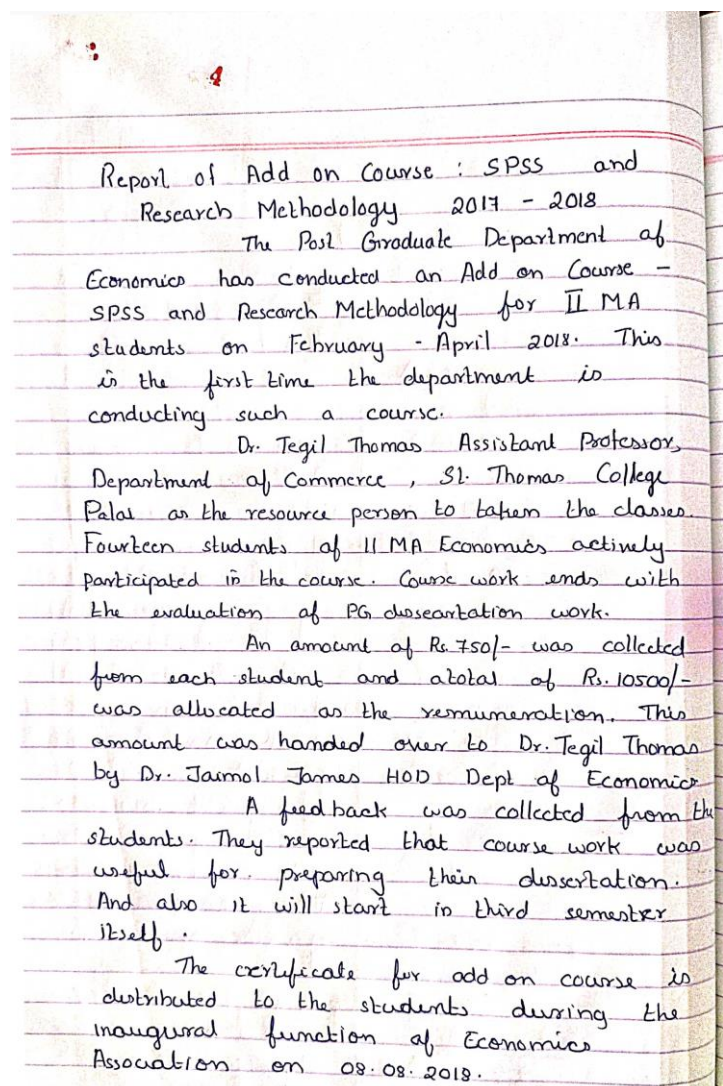 4
Report of Add on Course : SPSS and
Research Methodology 2017 - 2018
The Post Graduate Department of
Economics has conducted an Add on Course -
SPSS and Research Methodology for II MA
students on February - April 2018. This
is the first time the department is
conducting such a course.
Dr. Tegil Thomas Assistant Professor,
Department of Commerce, St. Thomas College
Palai as the resource person to taken the classes.
Fourteen students of II MA Economics actively
participated in the course. Course work ends with
the evaluation of PG disseartation work.
An amount of Rs. 750/- was collected
from each student and atotal of Rs. 10500/-
was allocated as the remuneration. This
amount was handed over to Dr. Tegil Thomas
by Dr. Jaimol James HOD Dept of Economics
A feedback was collected from the
students. They reported that course work was
useful for preparing their dissertation.
And also it will start in third semester
itself.
The certificate for add on course is
distributed to the students during the
inaugural function of Economics
Association on 08.08.2018.